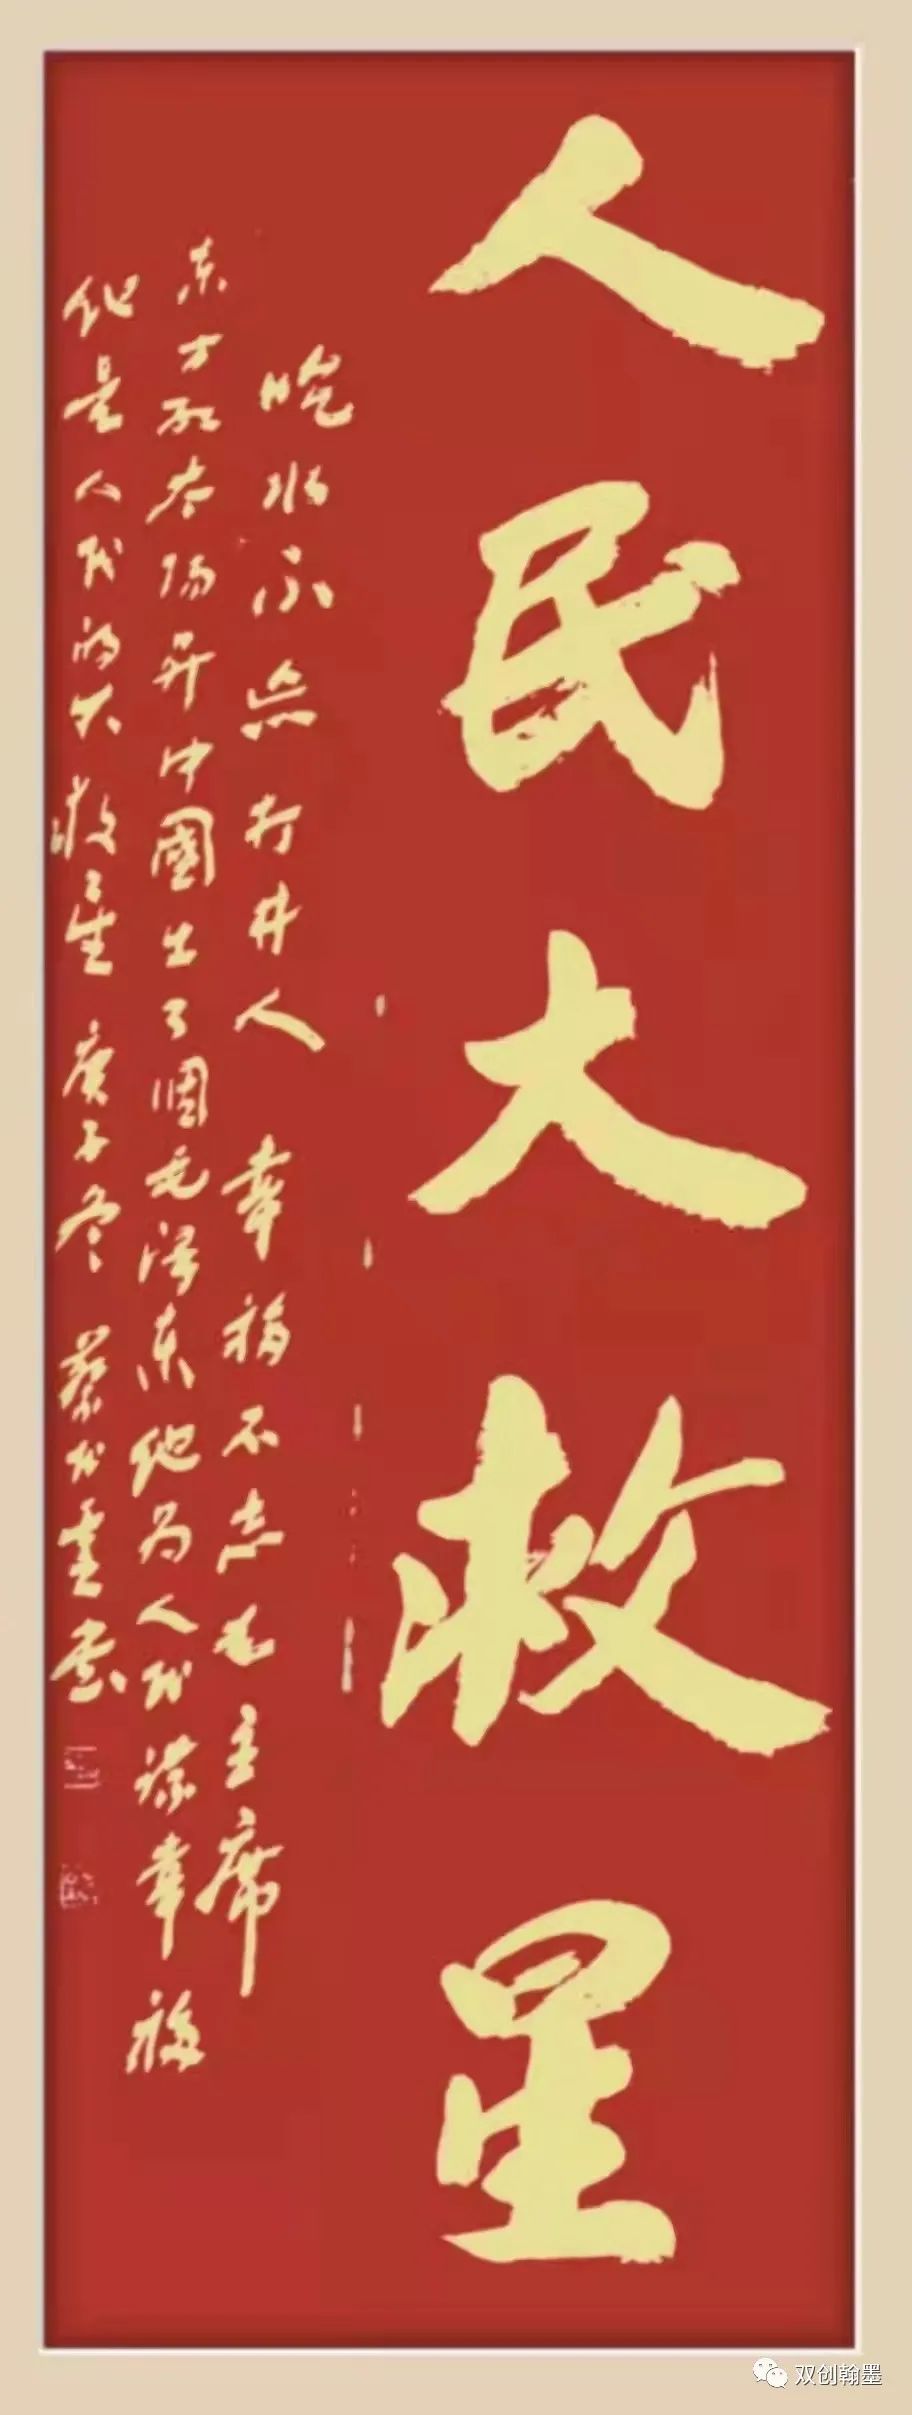 人民大救星
吃水不忘打井人 幸福不忘毛主席
东方红太阳升中國出了個毛泽東他为人民谋幸福
他是人民的大救星 庚子冬 蔡书
双创翰墨